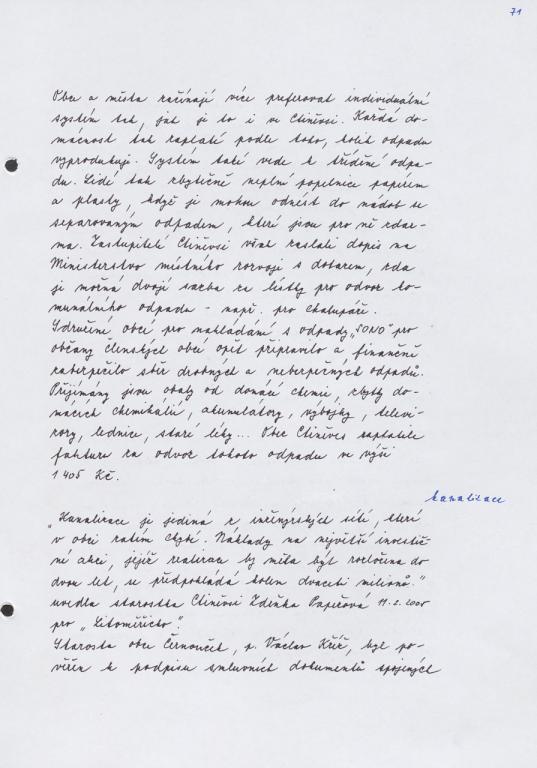 71
Obce a města začínají více preferovat individuální
systém tak, jak je to i ve Ctiněvsi. Každá do-
mácnost tak zaplatí podle toho, kolik odpadu
vyprodukuje. Systém také vede k třídění odpa-
du. Lidé tak zbytečně neplní popelnice papírem
a plasty, když je mohou odnést do nádob se
separovaným odpadem, které jsou pro ně zdar-
ma. Zastupitelé Ctiněvsi však zaslali dopis na
Ministerstvo místního rozvoje s dotazem, zda
je možná dvojí sazba za lístky pro odvoz ko-
munálního odpadu - např. pro chalupáře.
Sdružení obcí pro nakládání s odpady „SONO" pro
občany členských obcí opět připravilo a finančně
zabezpečilo sběr drobných a nebezpečných odpadů.
Přijímány jsou obaly od domácí chemie, zbytky do-
mácích chemikálií, akumulátory, výbojky, televi-
zory, lednice, staré léky... Obec Ctiněves zaplatila
fakturu za odvoz tohoto odpadu ve výši
1 405 Kč.
kanalizace
„Kanalizace je jediná z inženýrských sítí, která
v obci zatím chybí. Náklady na největší investič
ní akci, jejíž realizace by měla být rozložena do
dvou let, se předpokládá kolem dvaceti milionů."
uvedla starostka Ctiněvsi Zdeňka Papežová 11.2.2005
pro „Litoměřicko".
Starosta obce Černouček, p. Václav Kříž, byl po-
věřen k podpisu smluvních dokumentů spojených